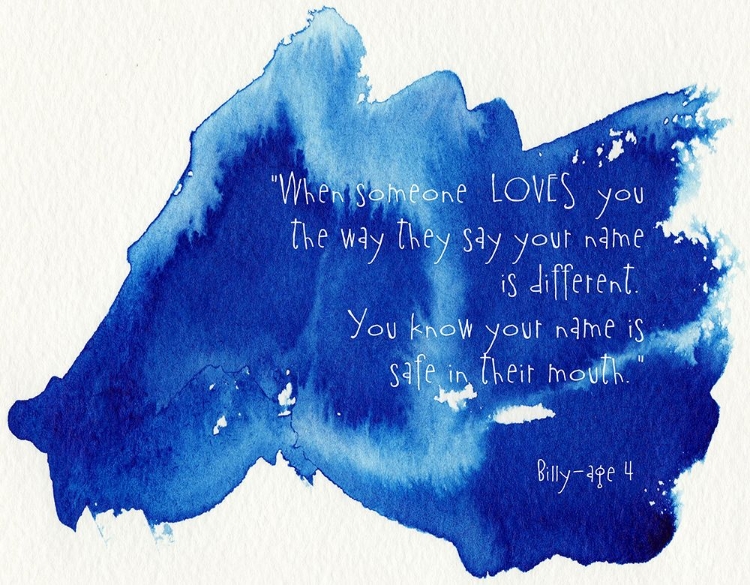 "When someone LOVES you
the way they say your name
is different.
You know your name is
safe in their mouth."
Billy-age 4